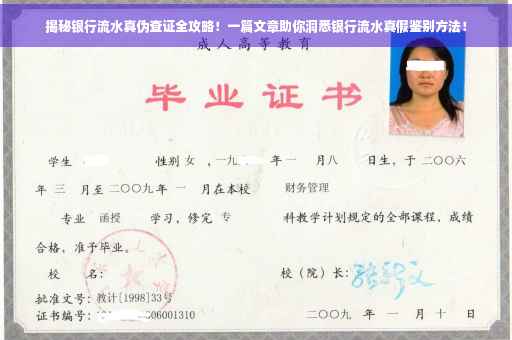 揭秘银行流水真伪查证全攻略！一篇文章助你洞悉银行流水真假鉴别方法！
成人高等教育
毕业证书
学生 性别 女 ，一九 年 一 月 八 日生，于 二〇〇六
年 三 月至 二〇〇九 年 一 月在本校 财务管理
专业 函授 学习，修完 专 科教学计划规定的全部课程，成绩
合格，准予毕业。
校 名： 校（院）长：
批准文号：教计[1998]33号
证书编号： 06001310 二〇〇九 年 一 月 十 日